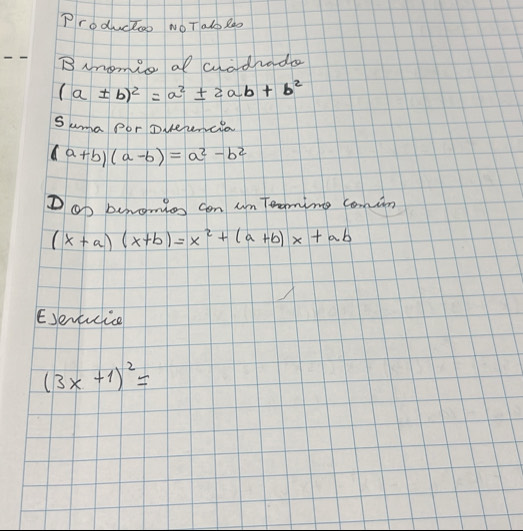 Productos NOTables
Binomio al cuadrado
(a ± b)² = a² ± 2ab + b²
Suma Por Diferencia
(a+b)(a-b) = a² - b²
Dos binomios con un Termino común
(x+a) (x+b) = x² + (a+b) x + ab
Ejercicio
(3x + 1)² =